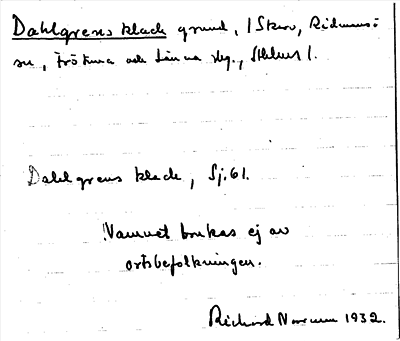 Dahlgrens klack grund, 1 Skuv, Ridmansö
sn, Frötuna och Länna skg., Sthlms l.
Dahlgrens klack, Sj. 61.
Namnet brukas ej av
ortsbefolkningen.
Richard Norman 1932.